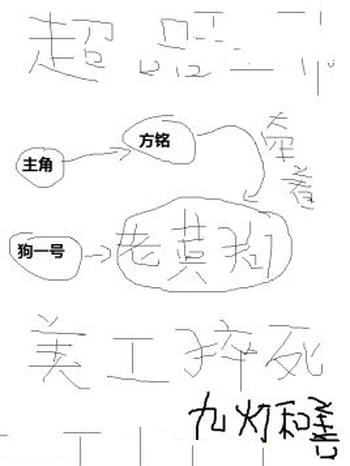 超品
方铭
牵着
主角
狗一号
老黄狗
美工猝死
九灯和善